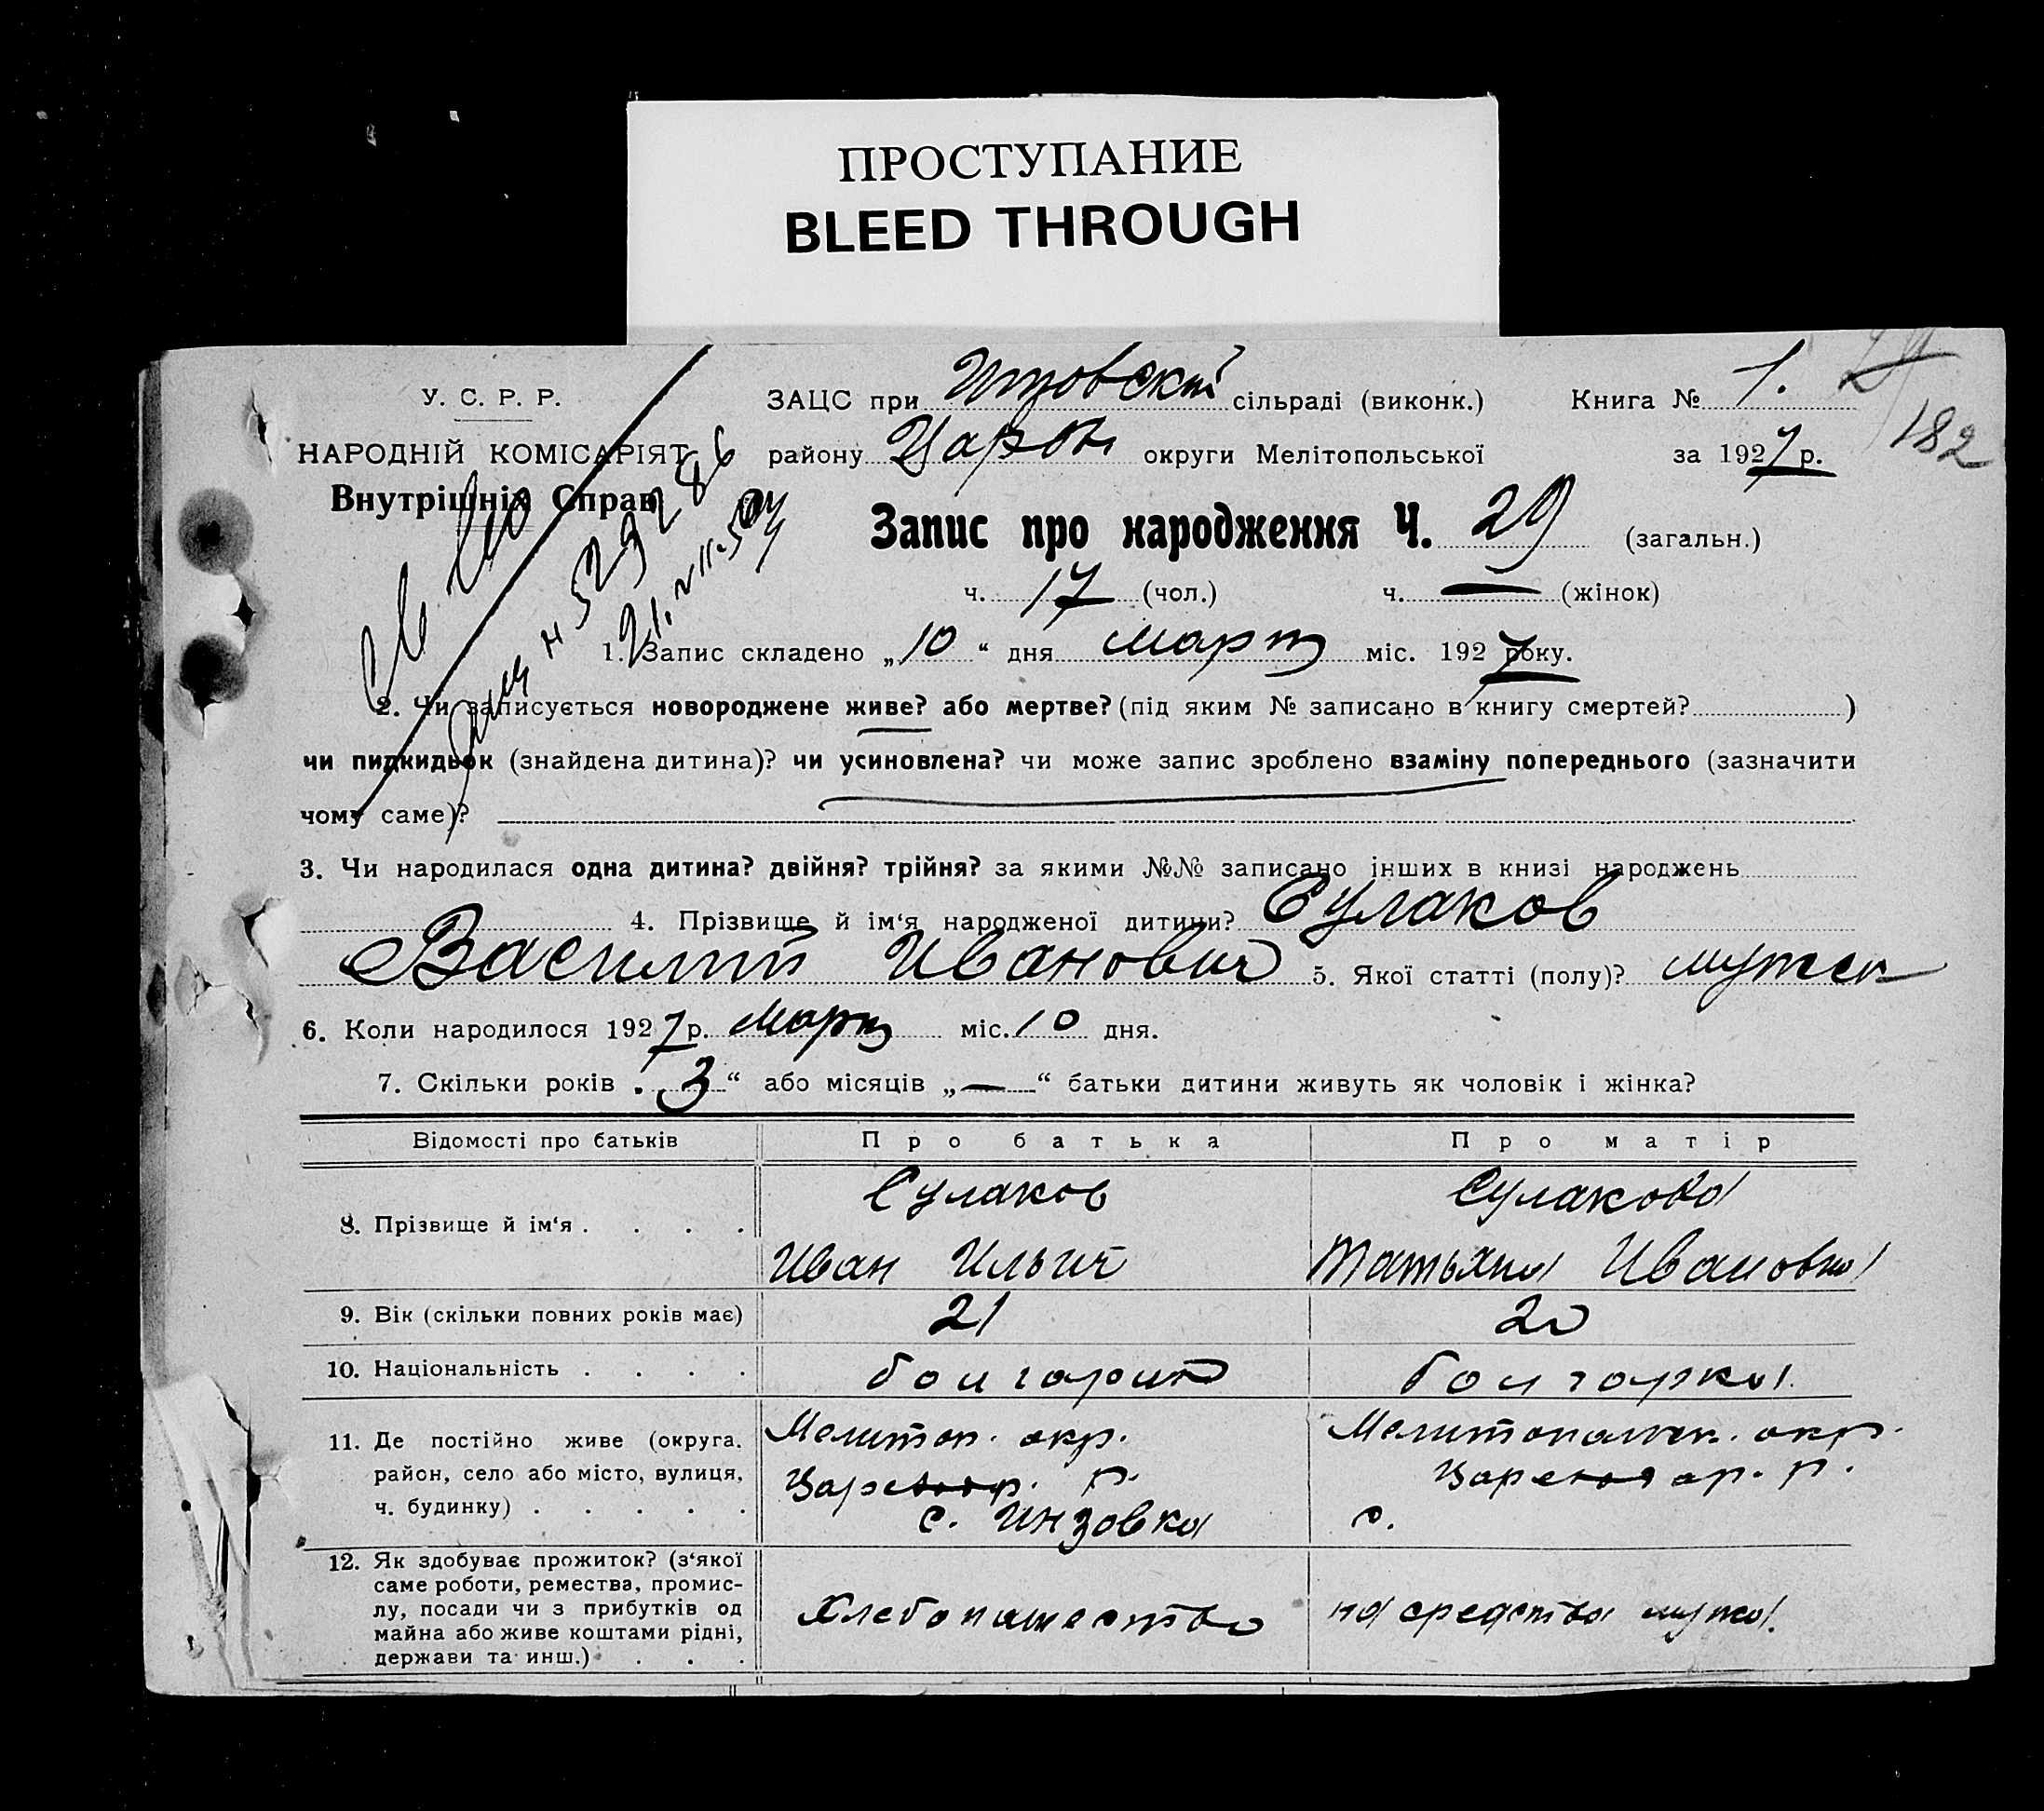 ПРОСТУПАНИЕ
BLEED THROUGH
У. С. Р. Р.
НАРОДНІЙ КОМІСАРІЯТ
Внутрішніх Справ
ЗАЦС при сільраді (виконк.) Книга № 1.
району округи Мелітопольської за 1927 р.
182
Запис про народження Ч. 29 (загальн.)
ч. 17 (чол.) ч. — (жінок)
1. Запис складено „10“ дня март міс. 1927 року.
2. Чи записується новороджене живе? або мертве? (під яким № записано в книгу смертей? )
чи пидкидьок (знайдена дитина)? чи усиновлена? чи може запис зроблено взаміну попереднього (зазначити
чому саме)?
3. Чи народилася одна дитина? двійня? трійня? за якими №№ записано інших в книзі народжень
4. Прізвище й ім‘я народженої дитини? Сулаков
Василий Иванович 5. Якої статті (полу)? мужск
6. Коли народилося 1927 р. март міс. 10 дня.
7. Скільки років „3“ або місяців „—“ батьки дитини живуть як чоловік і жінка?
Відомості про батьків Про батька Про матір
8. Прізвище й ім‘я . . . . Сулаков Сулакова
Иван Ильич Татьяна Ивановна
9. Вік (скільки повних років має) 21 20
10. Національність . . . . болгарин болгарка.
11. Де постійно живе (округа, Мелитоп. окр. Мелитопольск. окр.
район, село або місто, вулиця, р. р.
ч. будинку) . . . . . с. Инзовка с.
12. Як здобуває прожиток? (з‘якої
саме роботи, ремества, промис-
лу, посади чи з прибутків од Хлебопашество на средства мужа.
майна або живе коштами рідні,
держави та инш.) . . .